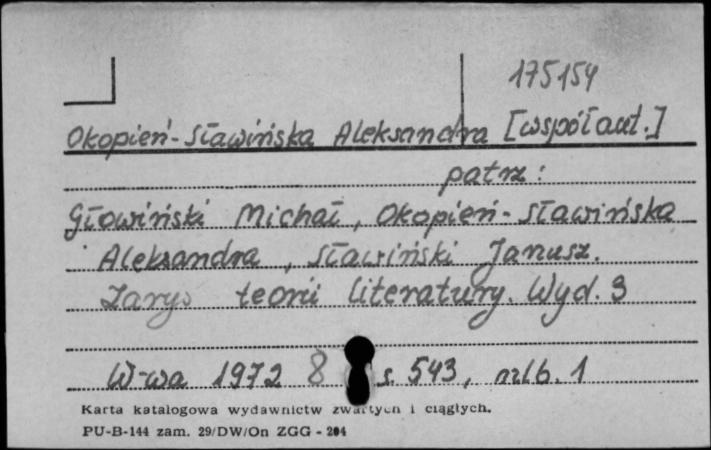 175154
Okopień-Sławińska Aleksandra [współaut.]
patrz:
Głowiński Michał, Okopień-Sławińska
Aleksandra, Sławiński Janusz.
Zarys teorii literatury. Wyd. 3
W-wa 1972 8 s. 543, nlb. 1
Karta katalogowa wydawnictw zwartych i ciągłych.
PU-B-144 zam. 29/DW/On ZGG - 204